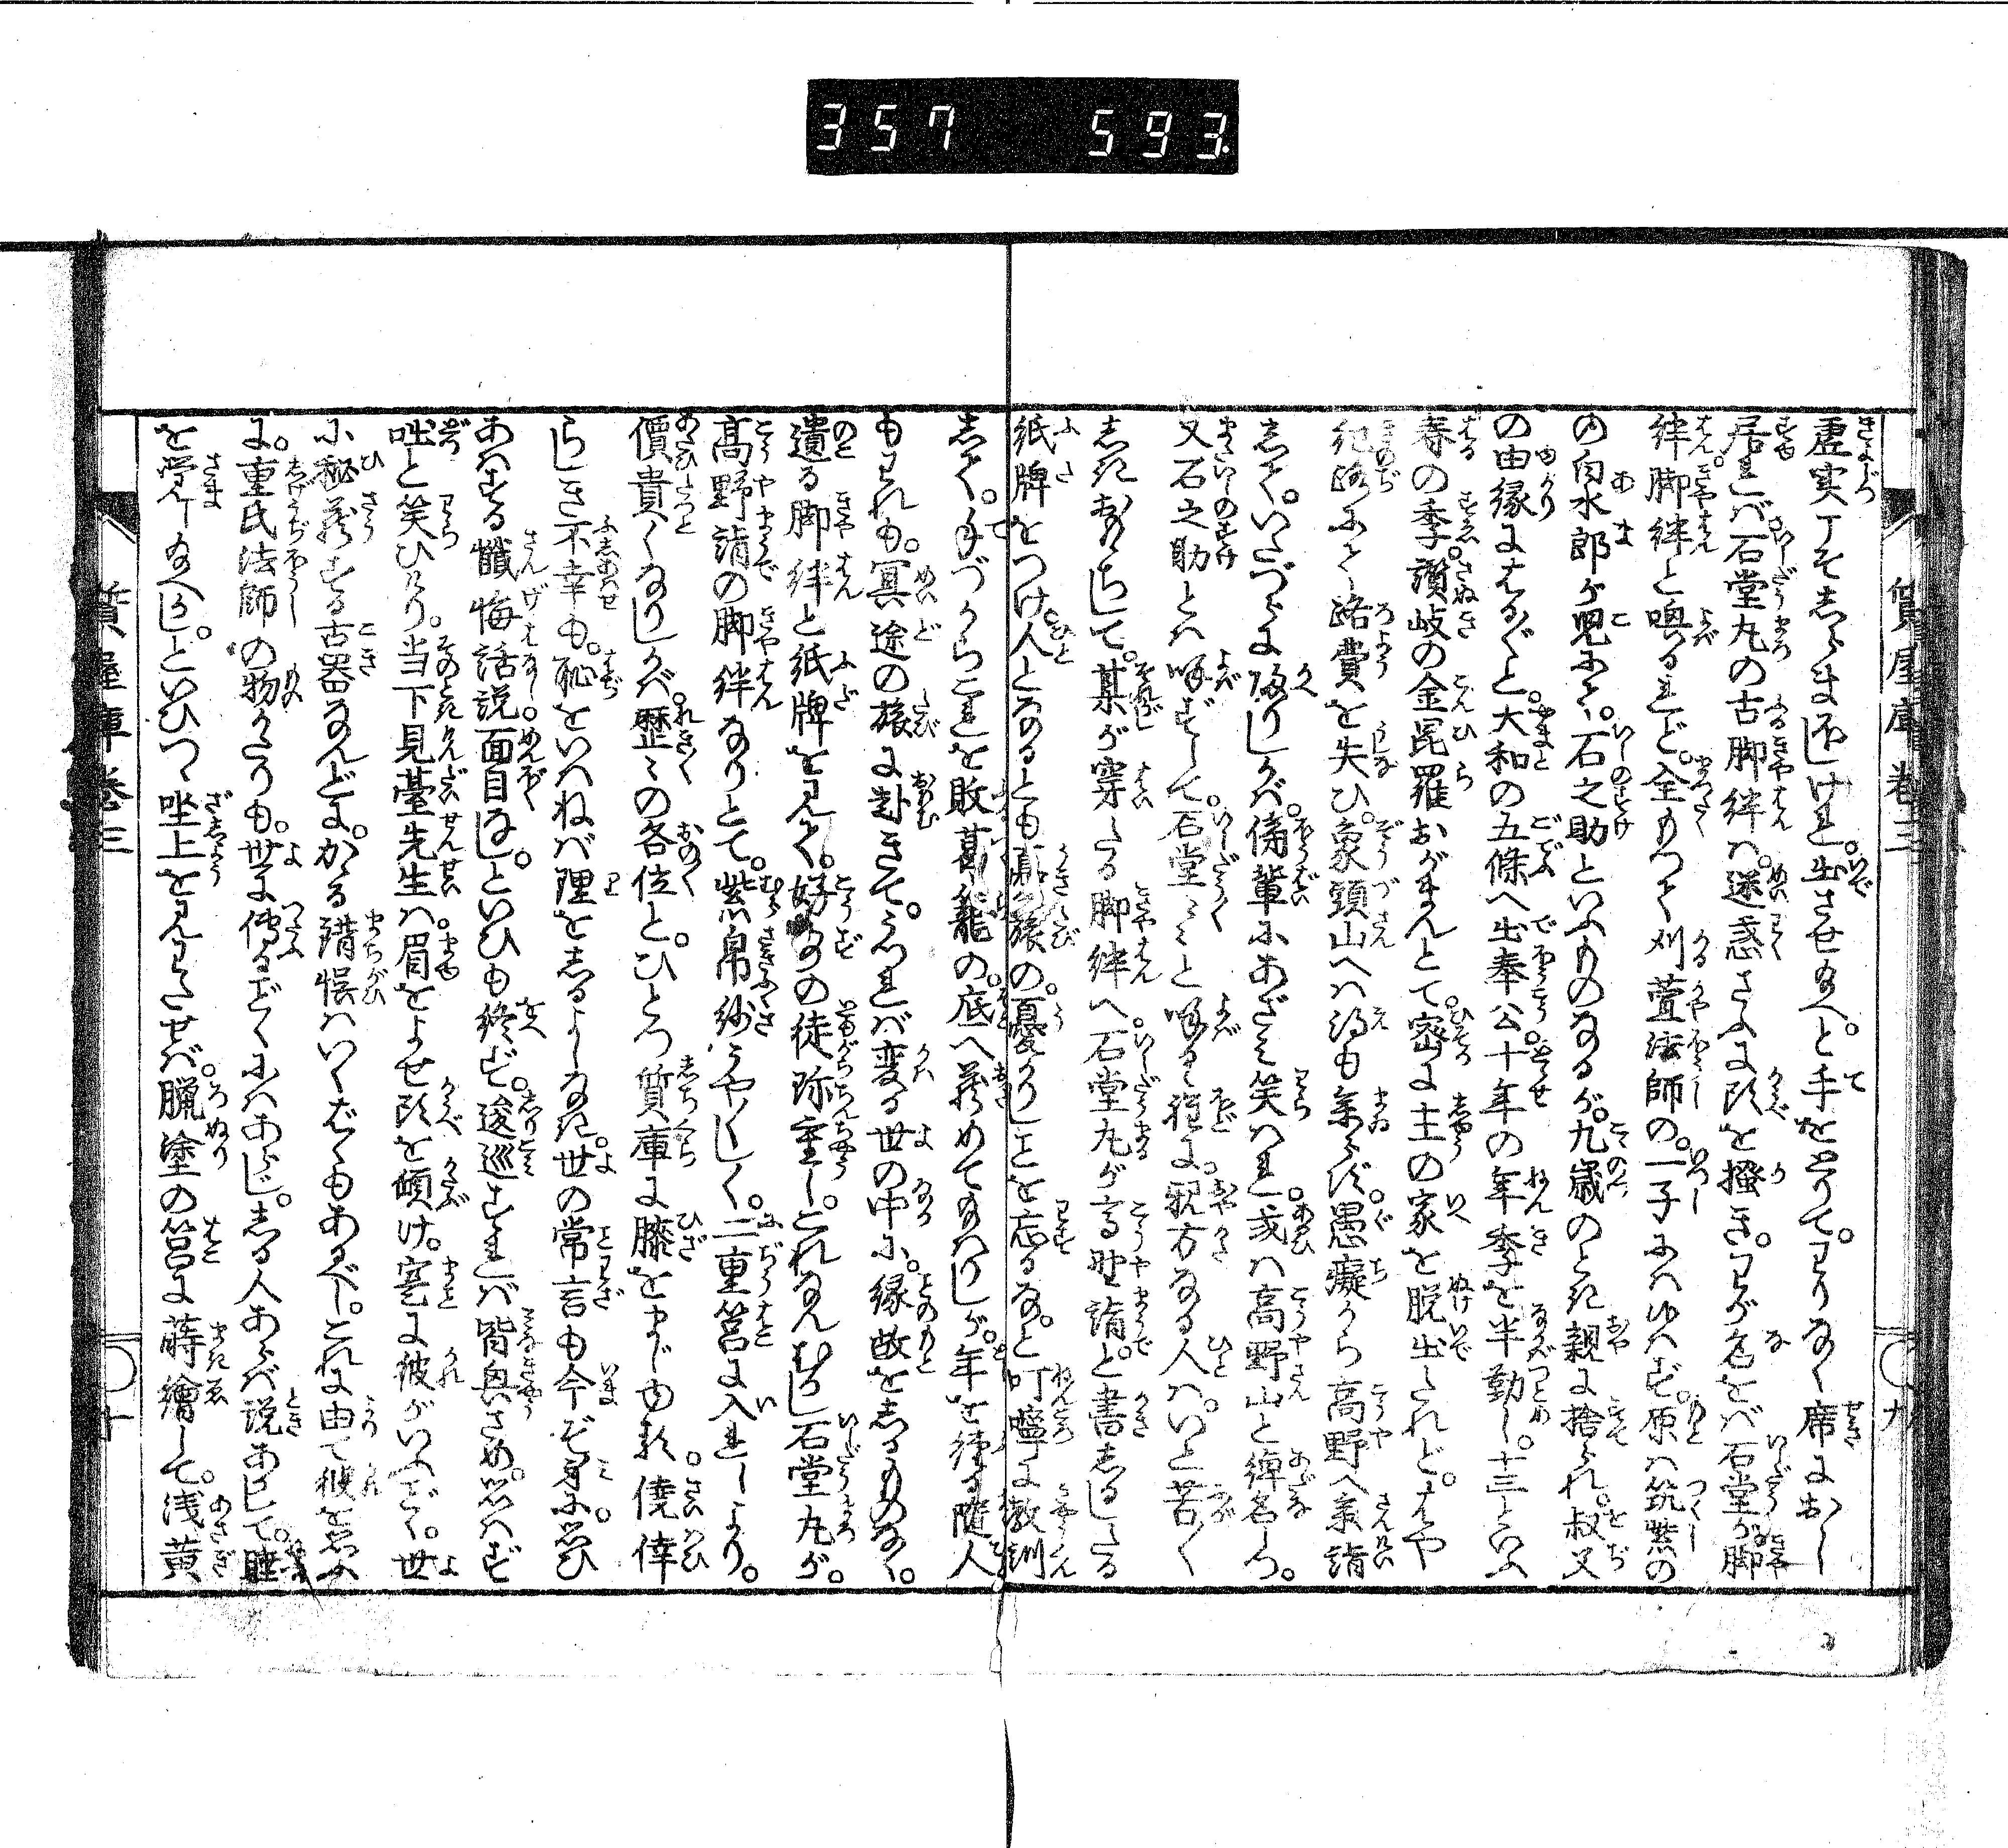 357 593
質屋庫 巻三 〇九
虚実丁そしらまほしけれ。出させ給へ。と手をとりて。わりなく席におし
居れば石堂丸の古脚絆は。迷惑さふに頭を掻き。わが名をば石堂が脚
絆脚絆と喚るれど。全もつて刈萱法師の。一子にはゆはず。原は筑紫の
の白水郎が児にて。石之助といふものなるが。九歳のとき親に捨られ。叔父
の由縁にはる〲と。大和の五條へ出奉公。十年の年季を半勤し。十三といふ
春の季。讃岐の金毘羅おがまんとて。密に主の家を脱出たれど。はや
紀路にて路費を失ひ。象頭山へは得も参らず。愚癡から高野へ参詣
して。いたづらに帰りしかば。傍輩にあざみ笑はれ。或は高野山と綽名しつ。
又石之助とは呼ずして。石堂〻〻と呼る程に。親方なる人は。いと苦〱
しきおもゝちして。某が穿たる脚絆へ。石堂丸が高野詣。と書しるしたる
紙牌をつけ。人となるとも羸旅の。憂かりしことを忘るな。と叮嚀に教訓
して。手づからこれを敗葛籠の。底へ蔵めて給はりしが。年を経る随。人
もわれも。冥途の旅に赴きて。みつれば変る世の中に。縁故をしるものなく。
遺る脚絆と紙牌を見て。好事の徒珍重し。これなんむかし石堂丸が。
高野詣の脚絆なりとて。紫帛紗うや〱しく。二重筥に入れしより。
價貴くなりしかば。歴〻の各位と。ひとつ質庫に膝をまじゆる。僥倖
らしき不幸も。恥をいはねば理をしるよしなき。世の常言も今ぞ身に。思ひ
あはする懺悔話説面目なし。といひも終ず。逡巡すれば皆興さめ。思はず
咄と笑ひけり。当下見臺先生は。眉をよせ頭を傾け。寔に彼がいふごく。世
に秘蔵する古器なんどに。かゝる錯悞はいくばくもあるべし。これに由て彼を思ふ
に。重氏法師の物がたりも。世に傳るごくにはあらじ。しる人あらば説あかして。睡
を覚し給へかし。といひつゝ坐上を見わたせば。臘塗の筥に蒔繪して。浅黄
質屋庫 巻三 〇十